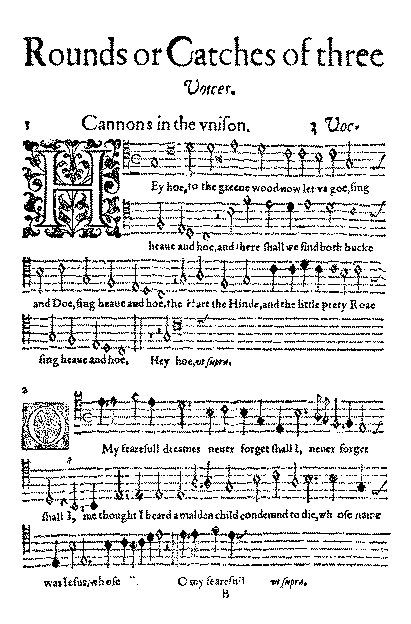 Rounds or Catches of three
Voices.
1 Cannons in the vnison. 3 Voc.
HEy hoe, to the greene wood now let vs goe, sing
heaue and hoe, and there shall we find both bucke
and Doe, sing heaue and hoe, the Hart the Hinde, and the little prety Roae
sing heaue and hoe. Hey hoe, vt supra.
2
O My fearefull dreames neuer forget shall I, neuer forget
shall I, me thought I heard a maiden child condemnd to die, wh ose name
was Iesus, whose ". O my fearefull vt supra.
B